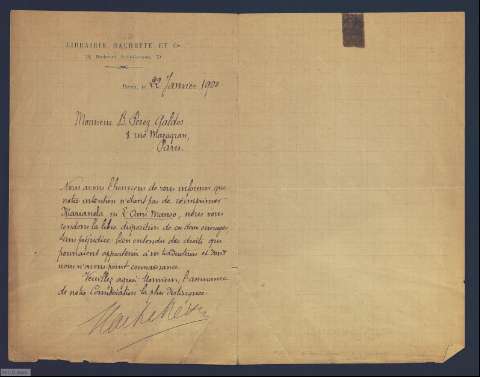 LIBRAIRIE HACHETTE ET Cie
79, Boulevard Saint-Germain, 79
Paris, le 22 Janvier 1900
Monsieur B. Pérez Galdós
8 rue Mazagran,
Paris.
Nous avons l'honneur de vous informer que
notre intention n'étant pas de réimprimer
Marianela ni l'Ami Manso, nous vous
rendons la libre disposition de ces deux ouvrages,
sans préjudice bien entendu des droits qui
pourraient appartenir à vos traducteurs et dont
nous n'avons point connaissance.
Veuillez agréer Monsieur, l'assurance
de notre Considération la plus distinguée.
Hachette & Cie